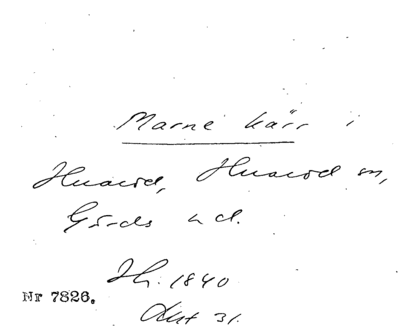 Marne kärr i
Huaröd, Huaröd sn,
Gärds hd.
Jh. 1840
Nr 7826.
Akt 31.